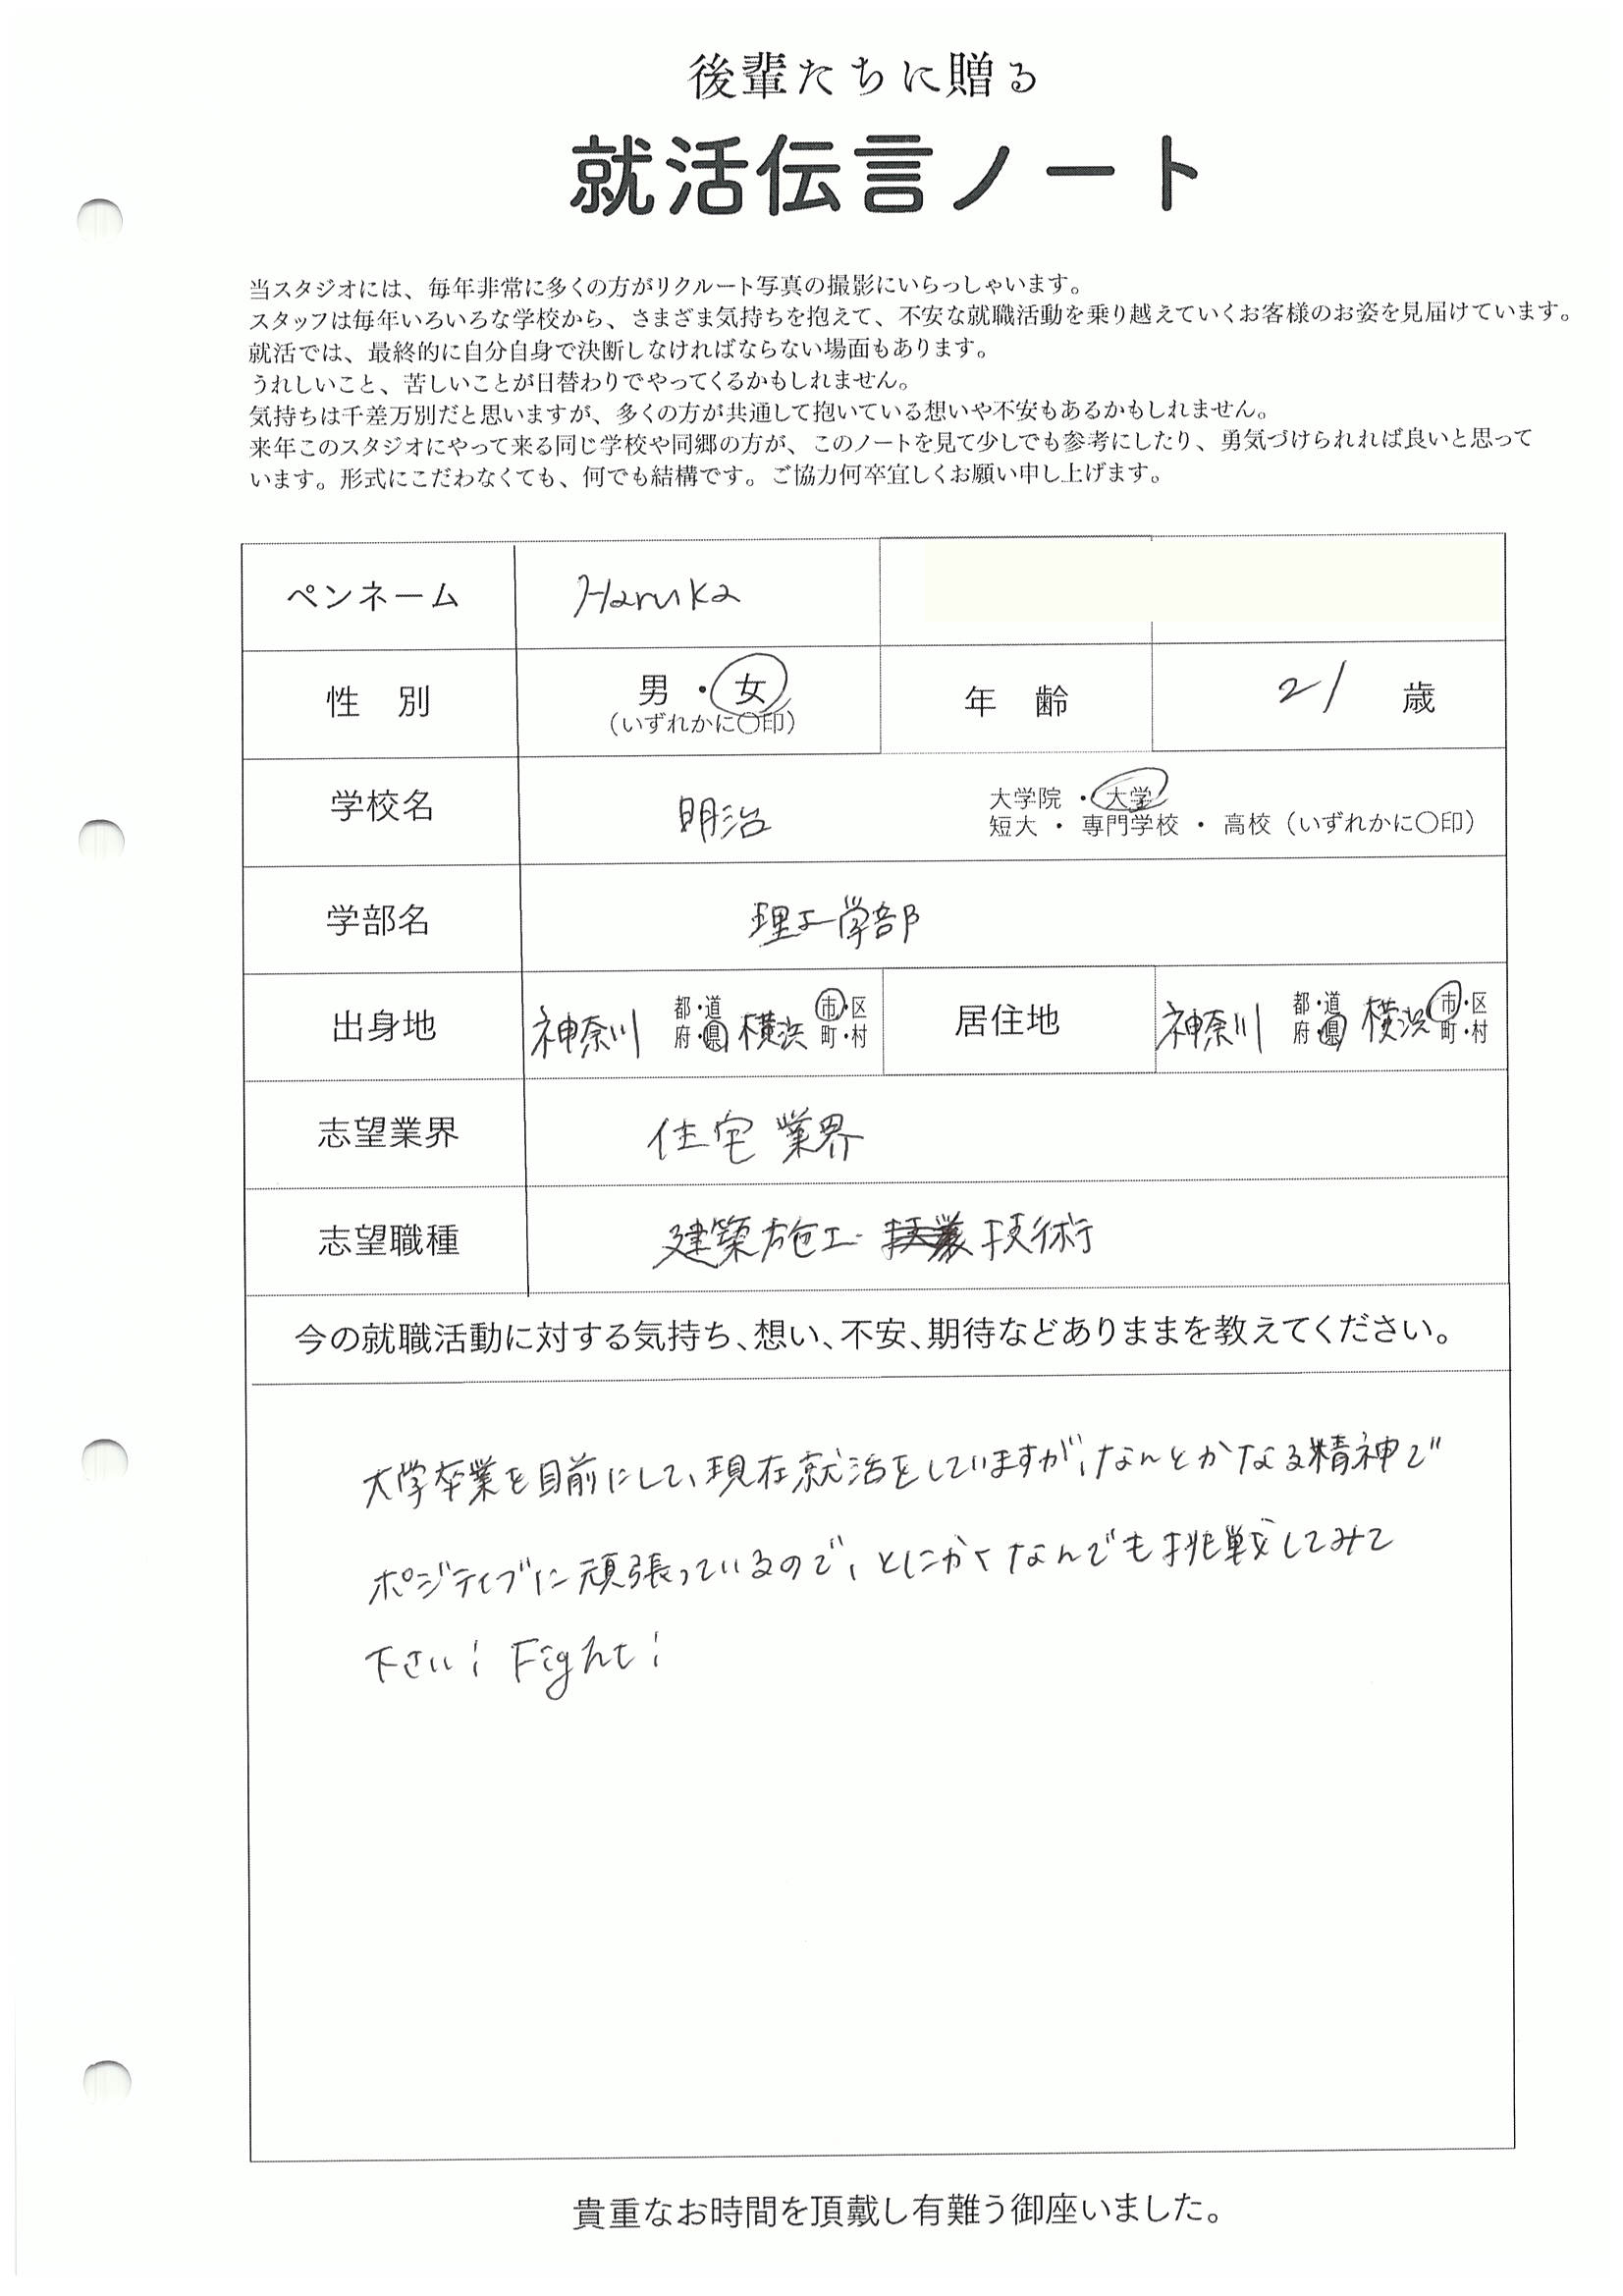 後輩たちに贈る
就活伝言ノート
当スタジオには、毎年非常に多くの方がリクルート写真の撮影にいらっしゃいます。
スタッフは毎年いろいろな学校から、さまざま気持ちを抱えて、不安な就職活動を乗り越えていくお客様のお姿を見届けています。
就活では、最終的に自分自身で決断しなければならない場面もあります。
うれしいこと、苦しいことが日替わりでやってくるかもしれません。
気持ちは千差万別だと思いますが、多くの方が共通して抱いている想いや不安もあるかもしれません。
来年このスタジオにやって来る同じ学校や同郷の方が、このノートを見て少しでも参考にしたり、勇気づけられれば良いと思って
います。形式にこだわなくても、何でも結構です。ご協力何卒宜しくお願い申し上げます。
ペンネーム Haruka
性 別 男・女 年 齢 21 歳
(いずれかに〇印)
学校名 明治 大学院・大学
短大・専門学校・高校(いずれかに〇印)
学部名 理工学部
出身地 神奈川 都・道 府・県 横浜 市・区 町・村 居住地 神奈川 都・道 府・県 横浜 市・区 町・村
志望業界 住宅業界
志望職種 建築施工 技術
今の就職活動に対する気持ち、想い、不安、期待などありままを教えてください。
大学卒業を目前にして、現在就活をしていますが、なんとかなる精神で
ポジティブに頑張っているので、とにかくなんでも挑戦してみて
下さい! Fight!
貴重なお時間を頂戴し有難う御座いました。